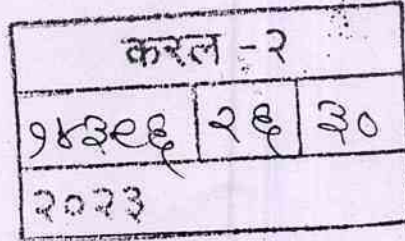 करल - २
१४३९६ २६ ३०
२०२३